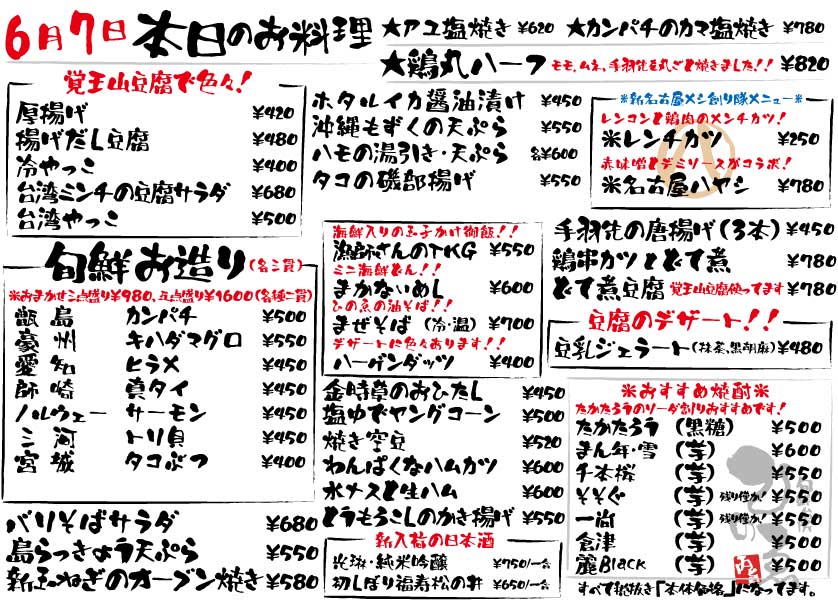 6月7日 本日のお料理
★アユ塩焼き ¥620 ★カンパチのカマ塩焼き ¥780
★鶏丸ハーフ モモ、ムネ、手羽先を丸ごと焼きました!! ¥820
覚王山豆腐で色々!
厚揚げ ¥420
揚げだし豆腐 ¥480
冷やっこ ¥400
台湾ミンチの豆腐サラダ ¥680
台湾やっこ ¥500
ホタルイカ醤油漬け ¥450
沖縄もずくの天ぷら ¥550
ハモの湯引き・天ぷら 各¥600
タコの磯部揚げ ¥550
※新名古屋メシ創り隊メニュー※
レンコンと鶏肉のメンチカツ!
※レンチカツ ¥250
赤味噌とデミソースがコラボ!
※名古屋ハヤシ ¥780
旬鮮お造り(各二貫)
※おまかせ三点盛り¥980、五点盛り¥1600(各種二貫)
甑島 カンパチ ¥500
豪州 キハダマグロ ¥550
愛知 ヒラメ ¥450
師崎 真タイ ¥450
ノルウェー サーモン ¥450
三河 トリ貝 ¥450
宮城 タコぶつ ¥400
海鮮入りの玉子かけ御飯!!
漁師さんのTKG ¥550
ミニ海鮮どん!!
まかないめし ¥600
ひの魚の油そば!!
まぜそば (冷・温) ¥700
デザートに色々あります!!
ハーゲンダッツ ¥400
手羽先の唐揚げ(3本) ¥450
鶏串カツとどて煮 ¥780
どて煮豆腐 覚王山豆腐使ってます ¥780
豆腐のデザート!!
豆乳ジェラート(抹茶、黒胡麻) ¥480
金時草のおひたし ¥450
塩ゆでヤングコーン ¥500
焼き空豆 ¥520
わんぱくなハムカツ ¥600
水ナスと生ハム ¥600
とうもろこしのかき揚げ ¥550
※おすすめ焼酎※
たかたろうのソーダ割りおすすめです!
たかたろう (黒糖) ¥500
まん年・雪 (芋) ¥600
千本桜 (芋) ¥550
そそぐ (芋) 残り僅か! ¥550
一尚 (芋) 残り僅か! ¥550
倉津 (芋) ¥500
麗Black (芋) ¥500
すべて税抜き「本体価格」になってます。
バリそばサラダ ¥680
島らっきょう天ぷら ¥550
新玉ねぎのオーブン焼き ¥580
新入荷の日本酒
光琳・純米吟醸 ¥750/一合
初しぼり福寿松の井 ¥650/一合